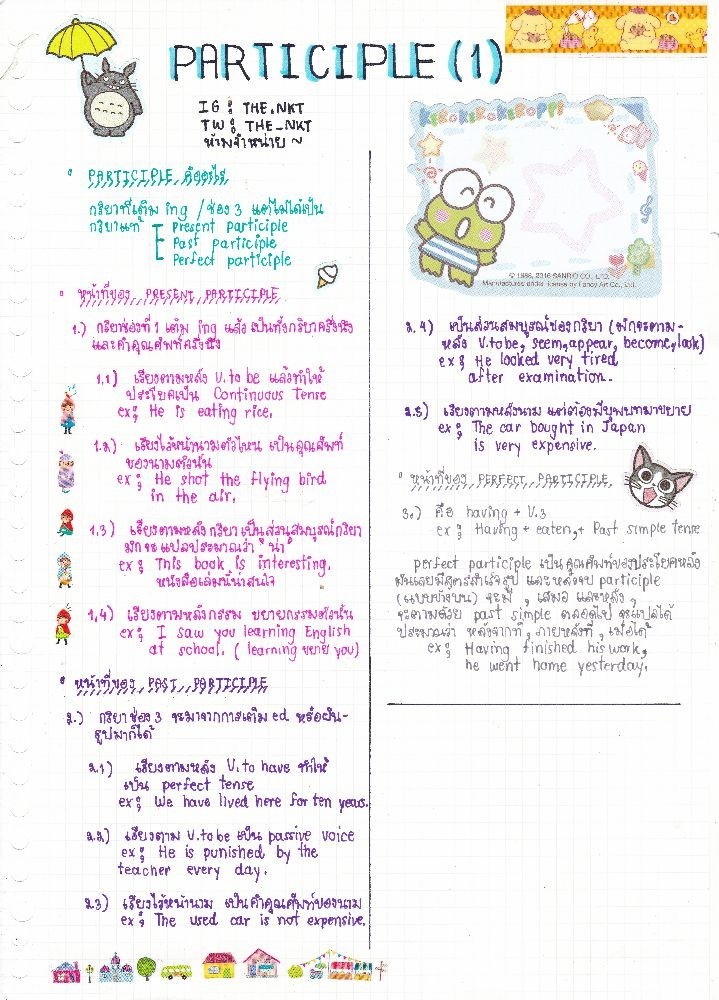 PARTICIPLE (1)
IG : THE.NKT
TW : THE_NKT
ห้ามจำหน่าย ~
PARTICIPLE คืออะไร
กริยาที่เติม ing / ช่อง 3 แต่ไม่ได้เป็น
กริยาแท้
Present participle
Past participle
Perfect participle
หน้าที่ของ PRESENT PARTICIPLE
1.) กริยาช่องที่ 1 เติม ing แล้ว เป็นทั้งกริยาครึ่งนึง
และคำคุณศัพท์ครึ่งนึง
1.1) เรียงตามหลัง V. to be แล้วทำให้
ประโยคเป็น Continuous Tense
ex : He is eating rice.
1.2) เรียงไว้หน้านามตัวไหน เป็นคุณศัพท์
ของนามตัวนั้น
ex : He shot the flying bird
in the air.
1.3) เรียงตามหลังกริยา เป็นส่วนสมบูรณ์กริยา
มักจะแปลประมาณว่า "น่า"
ex : This book is interesting.
หนังสือเล่มนี้น่าสนใจ
1.4) เรียงตามหลังกรรม ขยายกรรมตัวนั้น
ex : I saw you learning English
at school. ( learning ขยาย you)
หน้าที่ของ PAST PARTICIPLE
2.) กริยาช่อง 3 จะมาจากการเติม ed หรือผัน-
รูปมาก็ได้
2.1) เรียงตามหลัง V. to have ทำให้
เป็น perfect tense
ex : We have lived here for ten years.
2.2) เรียงตาม V. to be เป็น passive voice
ex : He is punished by the
teacher every day.
2.3) เรียงไว้หน้านาม เป็นคำคุณศัพท์ของนาม
ex : The used car is not expensive.
KEROKEROKEROPPI
© 1988, 2016 SANRIO CO., LTD.
Manufactures under license by Fancy Art Co., Ltd.
2.4) เป็นส่วนสมบูรณ์ของกริยา (มักจะตาม-
หลัง V. to be, seem, appear, become, look)
ex : He looked very tired
after examination.
2.5) เรียงตามหลังนาม แต่ต้องมีบุพบทมาขยาย
ex : The car bought in Japan
is very expensive.
หน้าที่ของ PERFECT PARTICIPLE
3.) คือ having + V.3
ex : Having + eaten,+ Past simple tense
perfect participle เป็นคุณศัพท์ของประโยคหลัง
มันเลยมีสูตรสำเร็จรูป และหลังจบ participle
(แบบข้างบน) จะมี , เสมอ และหลัง ,
จะตามด้วย past simple ตลอดไป จะแปลได้
ประมาณว่า หลังจากที่ , ภายหลังที่ , เมื่อได้
ex : Having finished his work,
he went home yesterday.